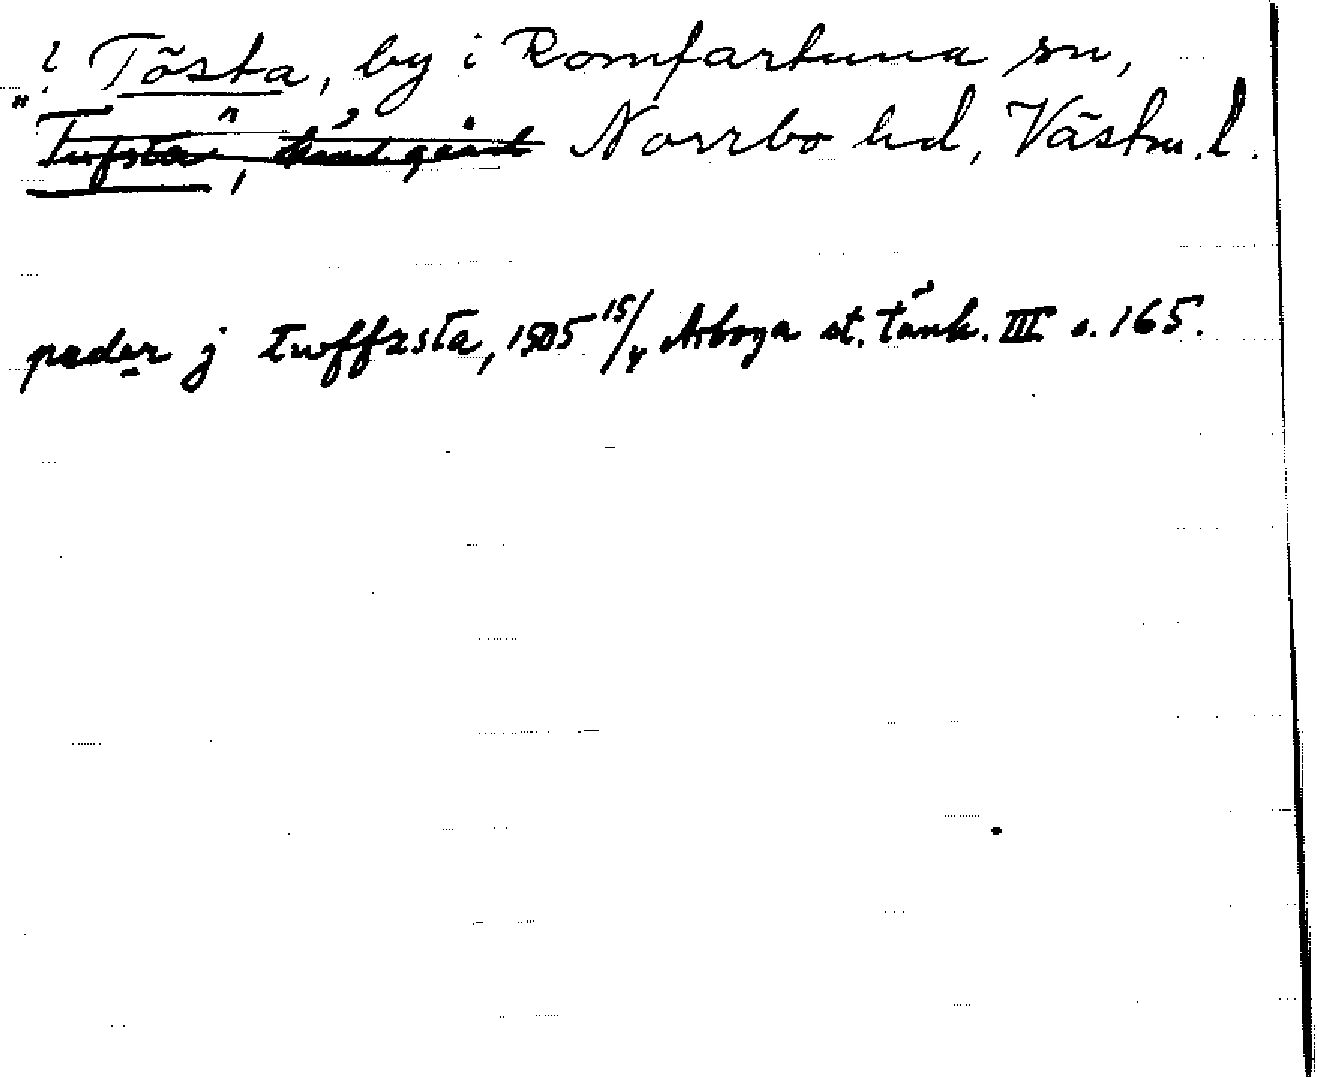 ? Tösta, by i Romfartuna sn,
"Tufsta", Norrbo hd, Västm. l.
peder j twffzsta, 1505 15/4 Arboga st. tänk. III s. 165.